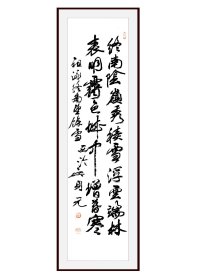 終南陰嶺秀積雪浮雲端林
表明霽色城中增暮寒
祖詠終南望餘雪